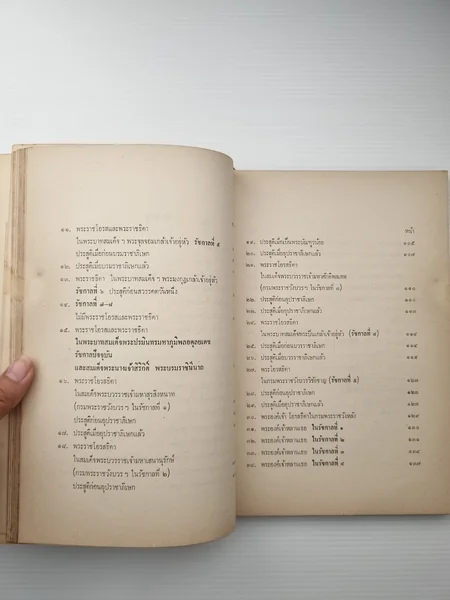 ๑๑. พระราชโอรสและพระราชธิดา
ในพระบาทสมเด็จ ฯ พระจุลจอมเกล้าเจ้าอยู่หัว รัชกาลที่ ๕
ประสูติเมื่อก่อนบรมราชาภิเษก
๑๒. ประสูติเมื่อบรมราชาภิเษกแล้ว
๑๓. พระราชธิดา ในพระบาทสมเด็จ ฯ พระมงกุฎเกล้าเจ้าอยู่หัว
รัชกาลที่ ๖ ประสูติก่อนสวรรคตวันหนึ่ง
๑๔. รัชกาลที่ ๗-๘
ไม่มีพระราชโอรสและพระราชธิดา
๑๕. พระราชโอรสและพระราชธิดา
ในพระบาทสมเด็จพระปรมินทรมหาภูมิพลอดุลยเดช
รัชกาลปัจจุบัน
และสมเด็จพระนางเจ้าสิริกิติ์ พระบรมราชินีนาถ
๑๖. พระราชโอรสธิดา
ในสมเด็จพระบวรราชเจ้ามหาสุรสิงหนาท
(กรมพระราชวังบวร ฯ ในรัชกาลที่ ๑)
ประสูติก่อนอุปราชาภิเษก
๑๗. ประสูติเมื่ออุปราชาภิเษกแล้ว
๑๘. พระราชโอรสธิดา
ในสมเด็จพระบวรราชเจ้ามหาเสนานุรักษ์
(กรมพระราชวังบวร ฯ ในรัชกาลที่ ๒)
ประสูติก่อนอุปราชาภิเษก
หน้า
๑๙. ประสูติเมื่อเป็นพระบัณฑูรน้อย
๒๐. ประสูติเมื่ออุปราชาภิเษกแล้ว
๒๑. พระราชโอรสธิดา
ในสมเด็จพระบวรราชเจ้ามหาศักดิพลเสพ
(กรมพระราชวังบวร ฯ ในรัชกาลที่ ๓)
๒๒. ประสูติก่อนอุปราชาภิเษก
๒๓. ประสูติเมื่ออุปราชาภิเษกแล้ว
๒๔. พระราชโอรสธิดา
ในพระบาทสมเด็จพระปิ่นเกล้าเจ้าอยู่หัว (รัชกาลที่ ๔)
๒๕. ประสูติก่อนบวรราชาภิเษก
๒๖. ประสูติเมื่อบวรราชาภิเษกแล้ว
๒๗. พระโอรสธิดา
ในกรมพระราชวังบวรวิชัยชาญ (รัชกาลที่ ๕)
๒๘. ประสูติก่อนอุปราชาภิเษก
๒๙. ประสูติเมื่ออุปราชาภิเษกแล้ว
๓๐. พระองค์เจ้า โอรสธิดาในกรมพระราชวังหลัง
๓๑. พระองค์เจ้าหลานเธอ ในรัชกาลที่ ๑
๓๒. พระองค์เจ้าหลานเธอ ในรัชกาลที่ ๒
๓๓. พระองค์เจ้าหลานเธอ ในรัชกาลที่ ๓
๓๔. พระองค์เจ้าหลานเธอ ในรัชกาลที่ ๔